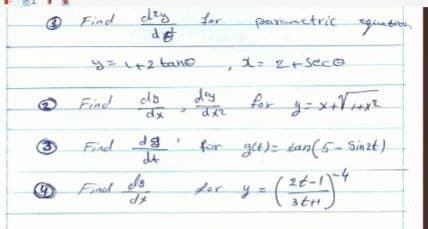 ① Find d²y/dθ for parametric equation
y = 1+2 tanθ , x = 2+secθ
② Find dy/dx , dy/dx² for y = x+√1+x²
③ Find dg/dt for g(t) = tan(5 - sin2t)
④ Find dy/dx for y = (2t-1/3t+1)⁻⁴